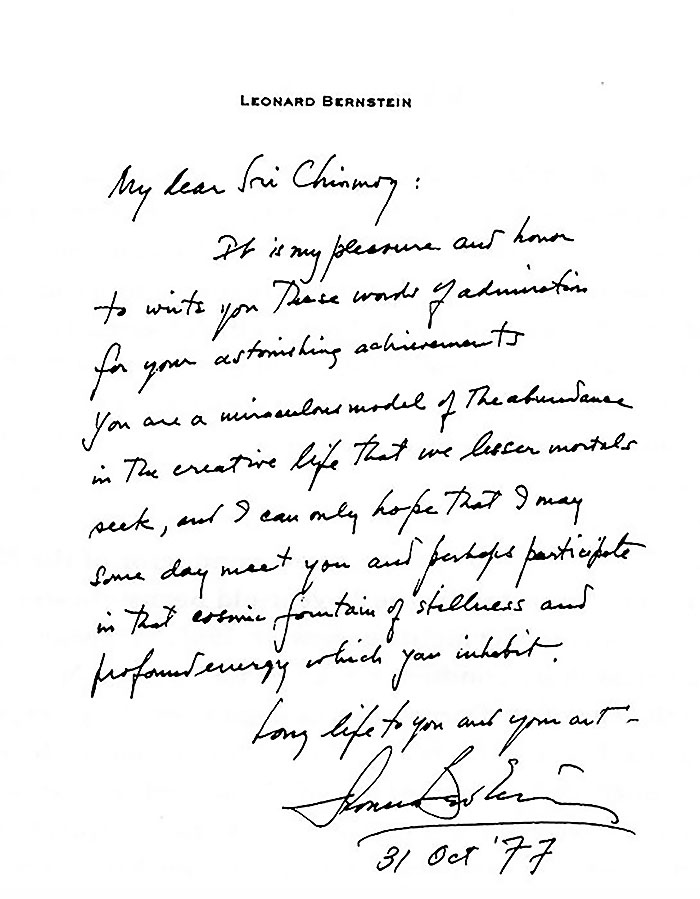 LEONARD BERNSTEIN
My dear Sri Chinmoy:
It is my pleasure and honor
to write you these words of admiration
for your astonishing achievements
You are a miraculous model of the abundance
in the creative life that we lesser mortals
seek, and I can only hope that I may
some day meet you and perhaps participate
in that cosmic fountain of stillness and
profound energy which you inhabit.
Long life to you and your art –
Leonard Bernstein
31 Oct '77